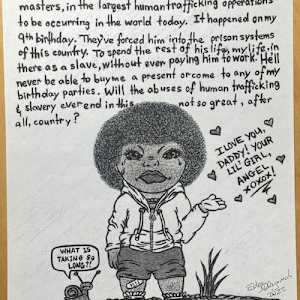 masters, in the largest human trafficking operations
to be occurring in the world today. It happened on my
9th birthday. They've forced him into the prison systems
of this country. To spend the rest of his life, my life, in
there as a slave, without even paying him to work. He'll
never be able to buy me a present or come to any of my
birthday parties. Will the abuses of human trafficking
& slavery ever end in this not so great, after
all, country?
I LOVE YOU,
DADDY! YOUR
LIL' GIRL,
ANGEL,
XOXOX!
WHAT IS
TAKING SO
LONG?!
2022